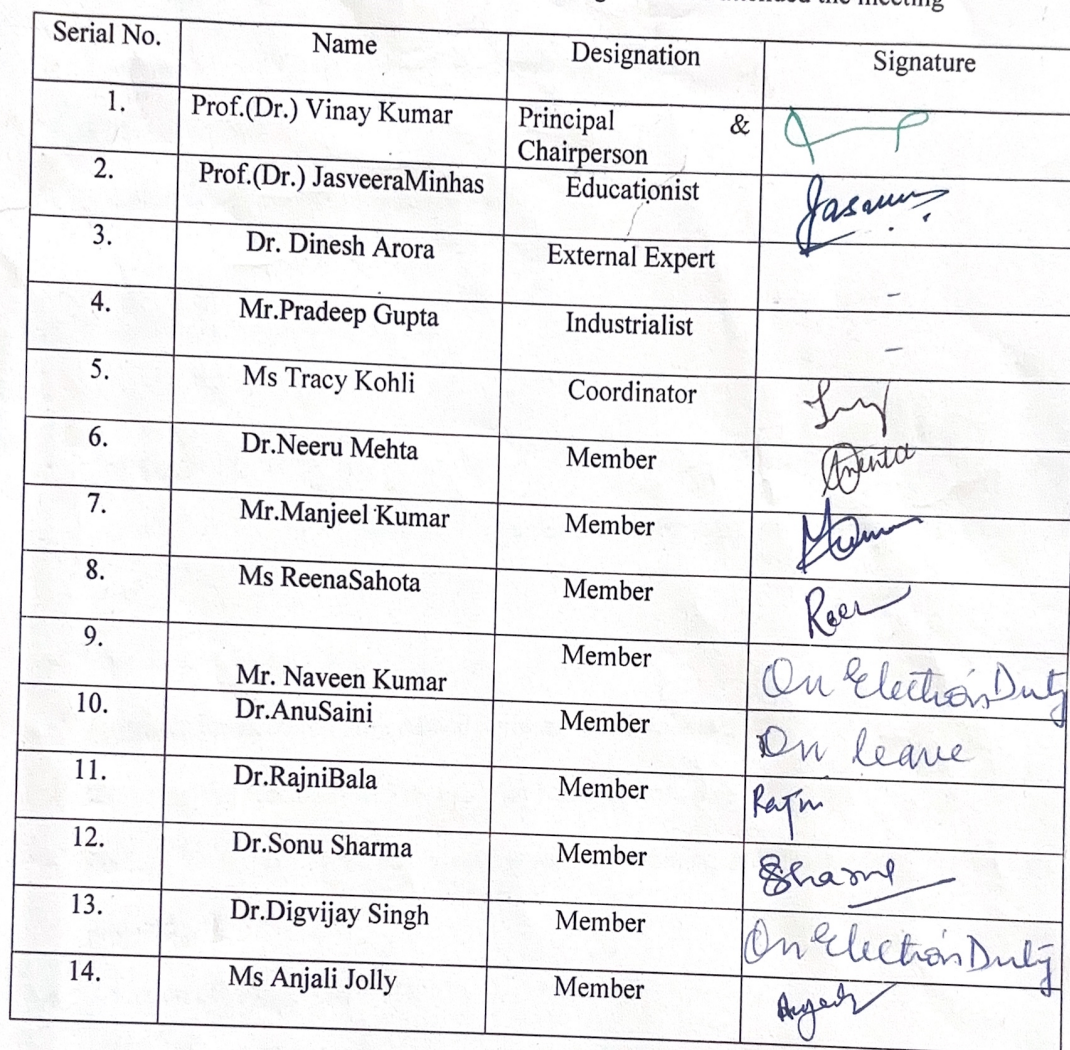 the meeting
Serial No. Name Designation Signature
1. Prof.(Dr.) Vinay Kumar Principal &
Chairperson
2. Prof.(Dr.) JasveeraMinhas Educationist
3. Dr. Dinesh Arora External Expert -
4. Mr.Pradeep Gupta Industrialist -
5. Ms Tracy Kohli Coordinator
6. Dr.Neeru Mehta Member
7. Mr.Manjeel Kumar Member
8. Ms ReenaSahota Member
9. Mr. Naveen Kumar Member On Election Duty
10. Dr.AnuSaini Member On leave
11. Dr.RajniBala Member
12. Dr.Sonu Sharma Member
13. Dr.Digvijay Singh Member On Election Duty
14. Ms Anjali Jolly Member